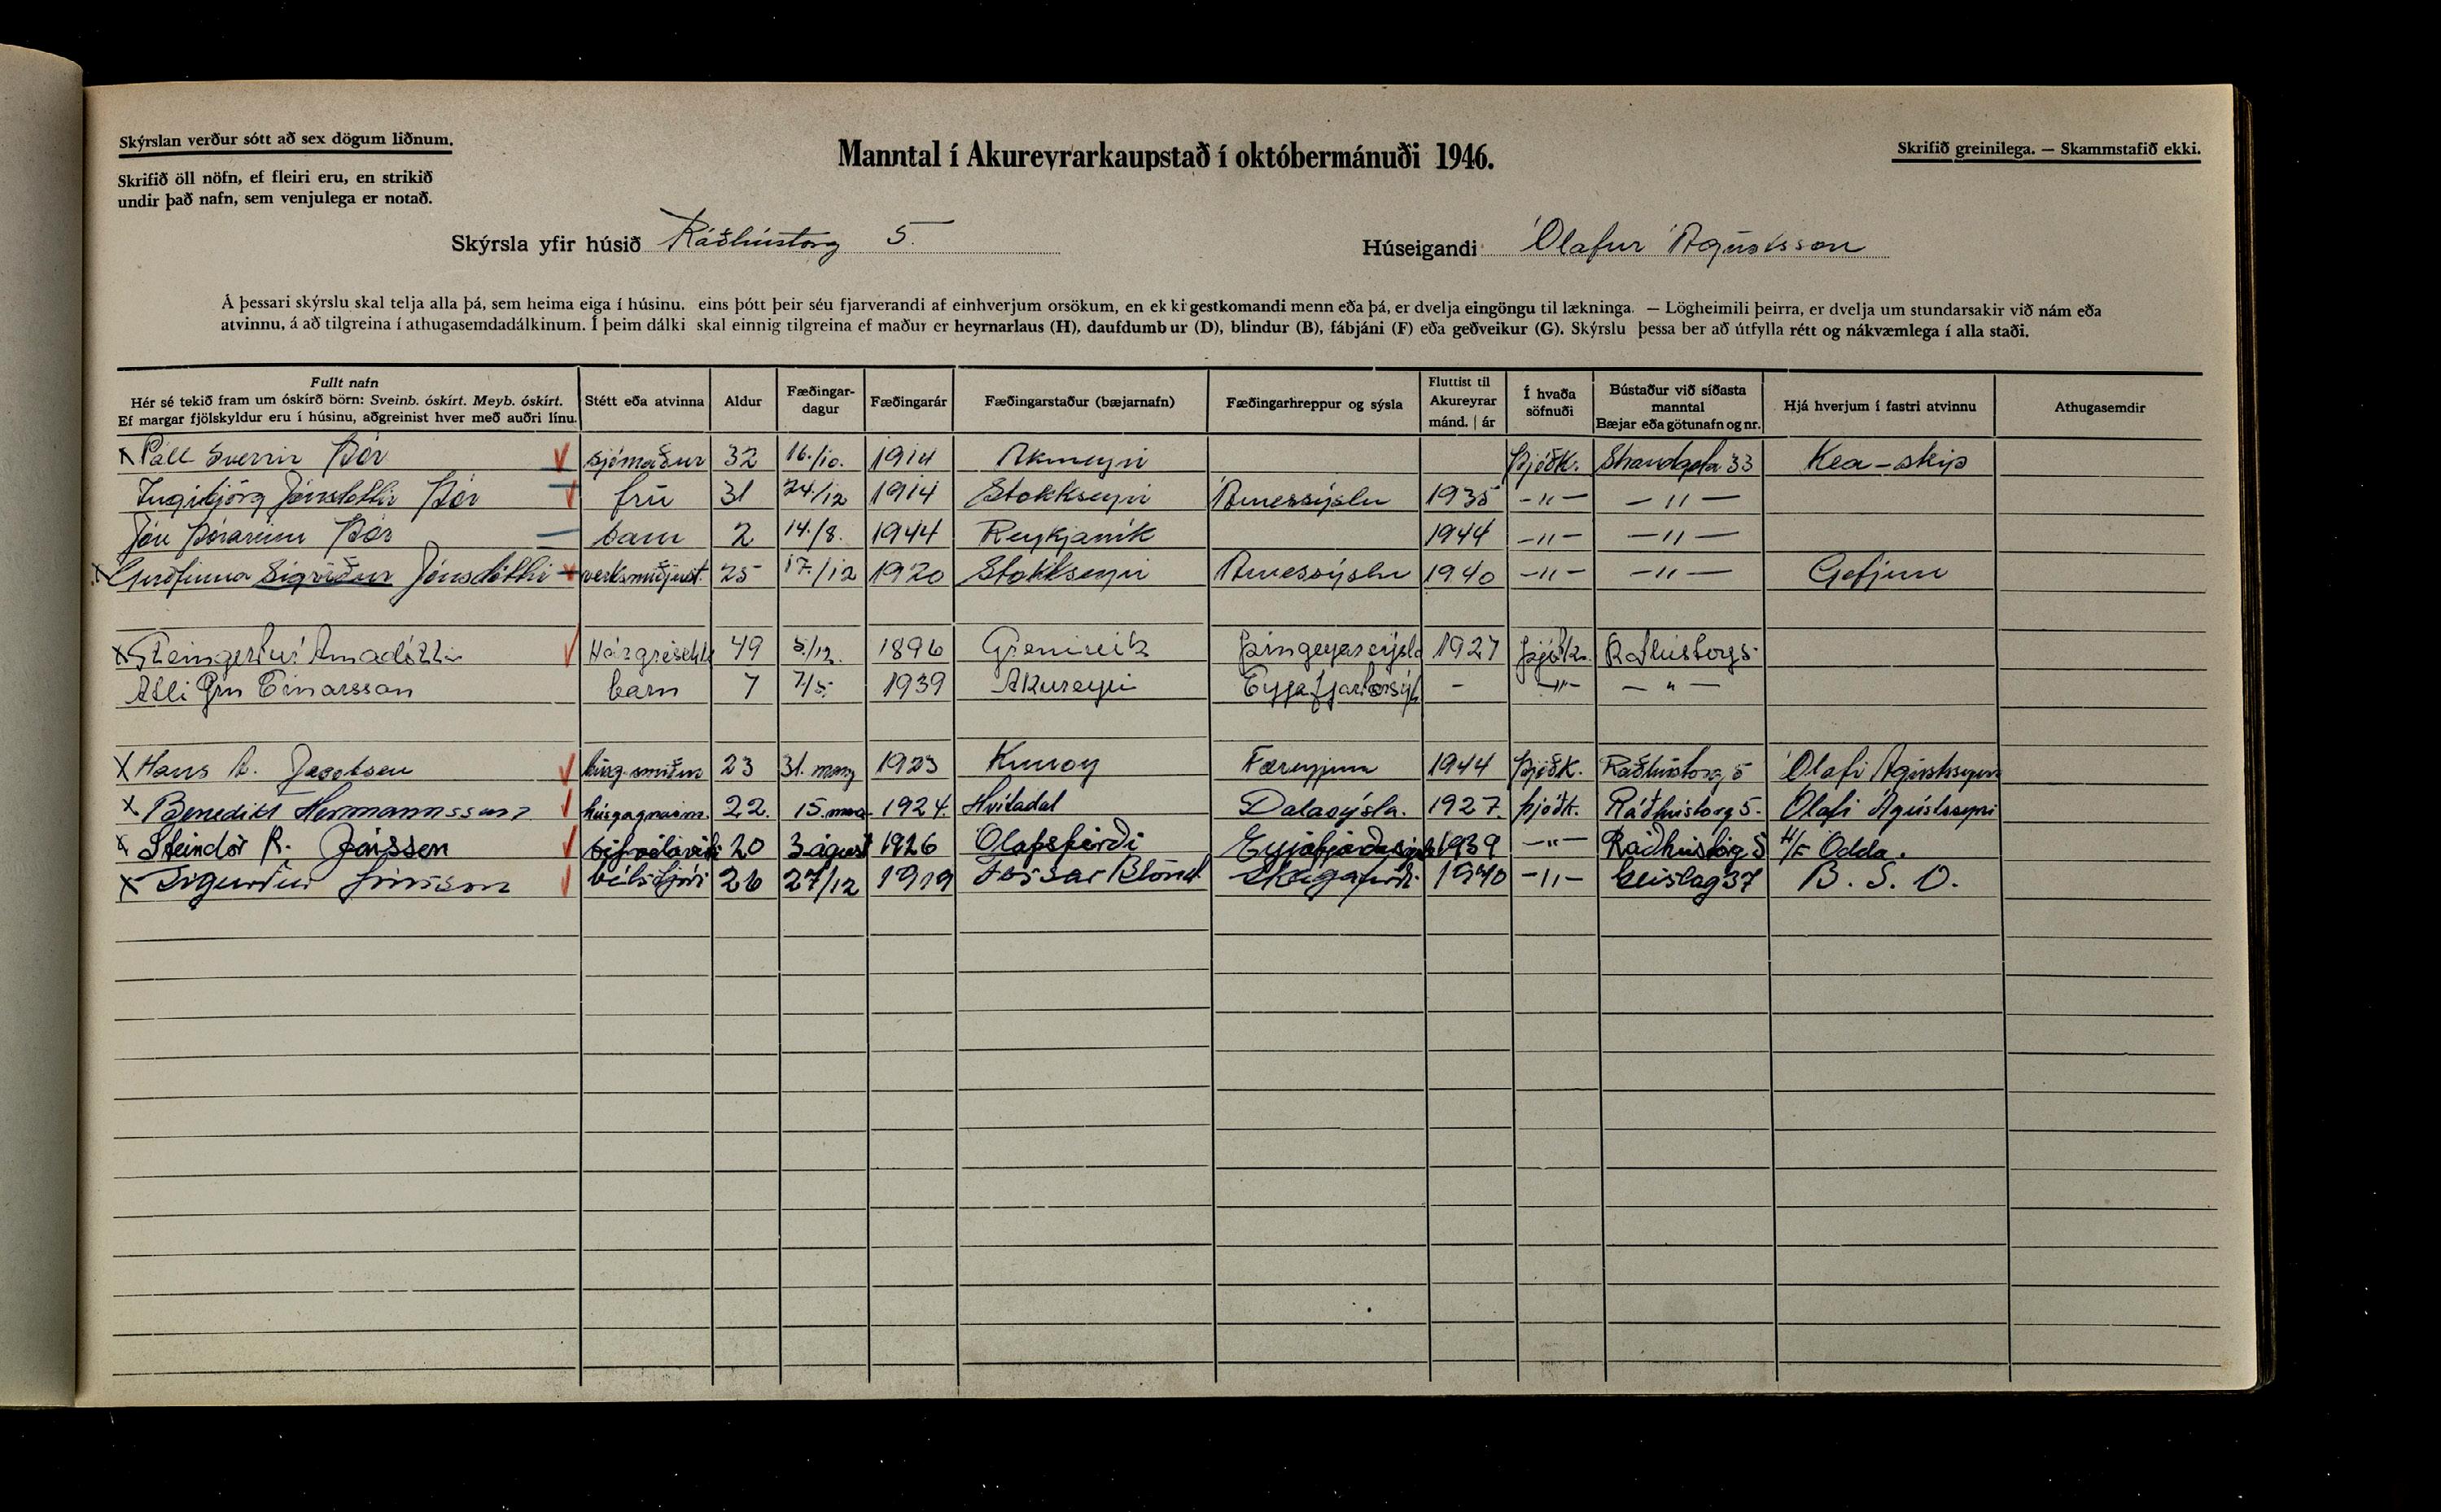 Skýrslan verður sótt að sex dögum liðnum.
Manntal í Akureyrarkaupstað í októbermánuði 1946.
Skrifið greinilega. — Skammstafið ekki.
Skrifið öll nöfn, ef fleiri eru, en strikið
undir það nafn, sem venjulega er notað.
Skýrsla yfir húsið Ráðhústorg 5.
Húseigandi Ólafur Ágústsson
Á þessari skýrslu skal telja alla þá, sem heima eiga í húsinu, eins þótt þeir séu fjarverandi af einhverjum orsökum, en ekki gestkomandi menn eða þá, er dvelja eingöngu til lækninga. — Lögheimili þeirra, er dvelja um stundarsakir við nám eða
atvinnu, á að tilgreina í athugasemdadálkinum. Í þeim dálki skal einnig tilgreina ef maður er heyrnarlaus (H), daufdumbur (D), blindur (B), fábjáni (F) eða geðveikur (G). Skýrslu þessa ber að útfylla rétt og nákvæmlega í alla staði.
Fullt nafn
Hér sé tekið fram um óskírð börn: Sveinb. óskírt. Meyb. óskírt.
Ef margar fjölskyldur eru í húsinu, aðgreinist hver með auðri línu.
Stétt eða atvinna
Aldur
Fæðingar-
dagur
Fæðingarár
Fæðingarstaður (bæjarnafn)
Fæðingarhreppur og sýsla
Fluttist til
Akureyrar
mánd. | ár
Í hvaða
söfnuði
Bústaður við síðasta
manntal
Bæjar eða götunafn og nr.
Hjá hverjum í fastri atvinnu
Athugasemdir
x Páll Sverrir Þór sjómaður 32 16./10. 1914 Akureyri Þjóðk. Strandgata 33 Kea-skip
Ingibjörg Jónsdóttir Þór frú 31 24/12 1914 Stokkseyri Árnessýslu 1935 -"- -"-
Jón Þórarinn Þór barn 2 14./8. 1944 Reykjavík 1944 -"- -"-
x Guðfinna Sigríður Jónsdóttir verksmiðjust. 25 17./12 1920 Stokkseyri Árnessýslu 1940 -"- -"- Gefjun
x Steingerður Árnadóttir 49 5/12. 1896 Grenivík Þingeyarsýsla 1927 Þjóðk. Ráðhústorg 5
Atli Örn Einarsson barn 7 7/5. 1939 Akureyri Eyjafjarðarsýs - -"- -"-
x Hans A. Jacobsen húsg.smiður 23 31. marz 1923 Kunoy Færeyjum 1944 Þjóðk. Ráðhústorg 5 Ólafi Ágústssyni
x Benedikt Hermannsson húsgagnasm. 22. 15. 1924. Hvítadal Dalasýsla. 1927. þjóðk. Ráðhústorg 5. Ólafi Ágústssyni
x Steindór R. Jónsson 20 3 ágúst 1926 Ólafsfirði 1939 -"- Ráðhústorg 5 H/F Odda.
x Sigurður Jónsson bílstjóri 26 27/12 1919 Skagafirði 1940 -"- 37 B. S. O.